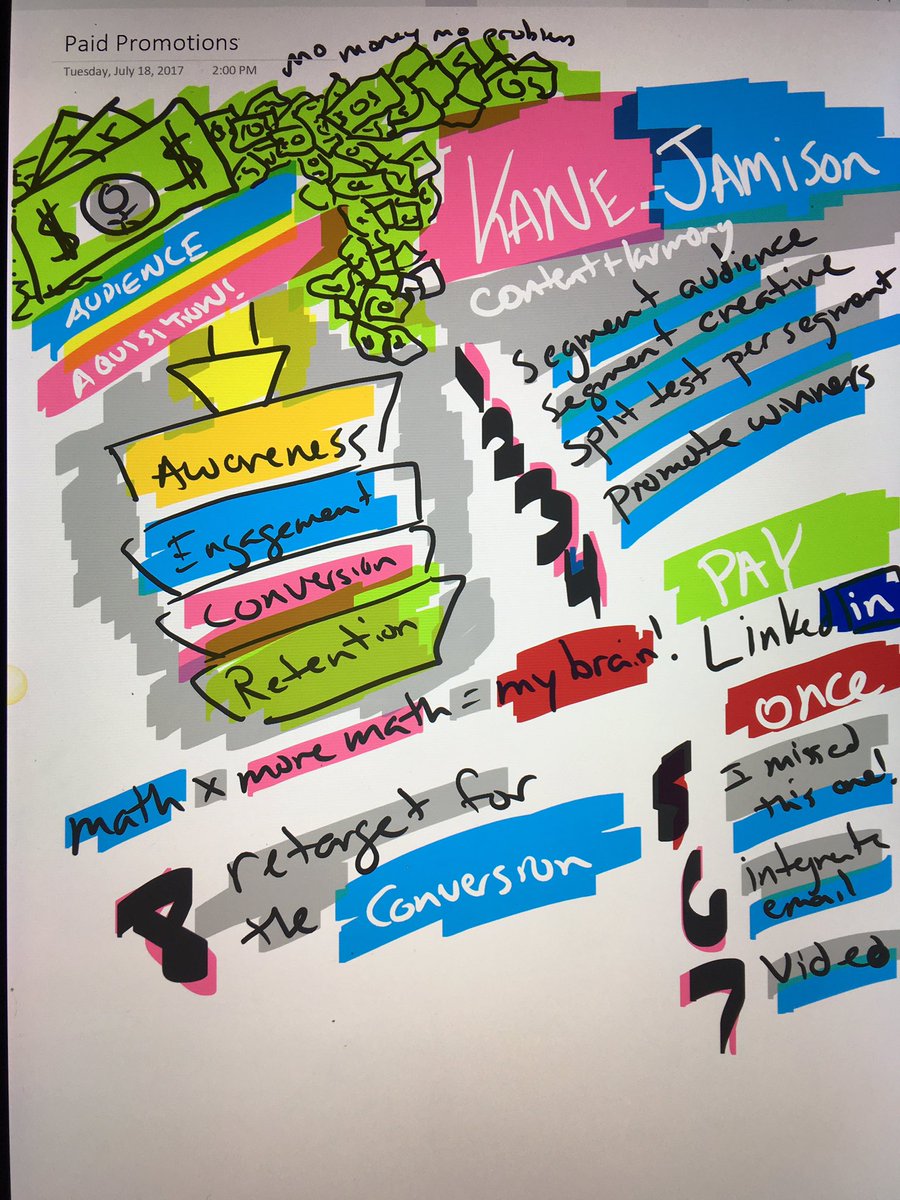 Paid Promotions
Tuesday, July 18, 2017 2:00 PM
mo money mo problem
KANE JAMISON
content harmony
AUDIENCE
AQUISITION!
1 Segment audience
2 segment creative
3 split test per segment
4 promote winners
Awareness
Engagement
Conversion
Retention
PAY
Linked in
once
math x more math = my brain!
5 I missed
this one!
6 integrate
email
7 Video
8 retarget for
the Conversion